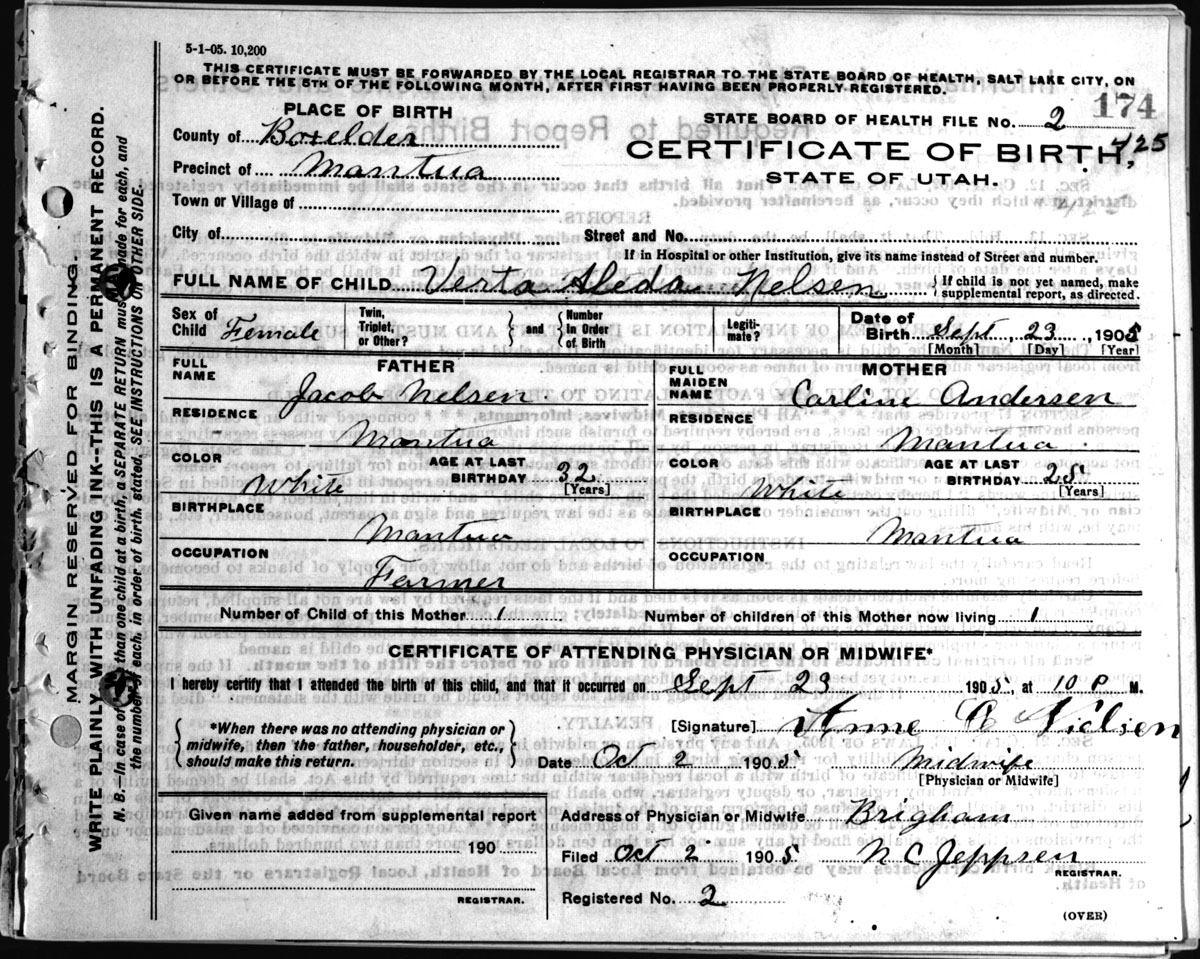 5-1-05. 10,200
THIS CERTIFICATE MUST BE FORWARDED BY THE LOCAL REGISTRAR TO THE STATE BOARD OF HEALTH, SALT LAKE CITY, ON
OR BEFORE THE 5TH OF THE FOLLOWING MONTH, AFTER FIRST HAVING BEEN PROPERLY REGISTERED.
PLACE OF BIRTH
County of Boxelder
Precinct of Mantua
Town or Village of
City of
STATE BOARD OF HEALTH FILE No. 2 174
425
CERTIFICATE OF BIRTH,
STATE OF UTAH.
Street and No.
If in Hospital or other Institution, give its name instead of Street and number.
FULL NAME OF CHILD Verta Aleda Nelsen { If child is not yet named, make
supplemental report, as directed.
Sex of
Child Female
Twin,
Triplet,
or Other? } and { Number
In Order
of Birth
Legiti-
mate?
Date of
Birth Sept, 23, 1905
[Month] [Day] [Year]
FATHER
FULL
NAME Jacob Nelsen.
RESIDENCE
Mantua
COLOR White
AGE AT LAST
BIRTHDAY 32
[Years]
BIRTHPLACE
Mantua
OCCUPATION
Farmer
MOTHER
FULL
MAIDEN
NAME Carline Andersen
RESIDENCE
Mantua.
COLOR White
AGE AT LAST
BIRTHDAY 25
[Years]
BIRTHPLACE
Mantua
OCCUPATION
Number of Child of this Mother 1 Number of children of this Mother now living 1
CERTIFICATE OF ATTENDING PHYSICIAN OR MIDWIFE*
I hereby certify that I attended the birth of this child, and that it occurred on Sept 23 1905, at 10 P M.
{ *When there was no attending physician or
midwife, then the father, householder, etc.,
should make this return. }
[Signature] Anne C Nielsen
Date Oct 2 1905 Midwife
[Physician or Midwife]
Given name added from supplemental report
190
REGISTRAR.
Address of Physician or Midwife Brigham
Filed Oct 2 1905 N C Jeppsen
REGISTRAR.
Registered No. 2
(OVER)
MARGIN RESERVED FOR BINDING.
WRITE PLAINLY WITH UNFADING INK--THIS IS A PERMANENT RECORD.
N. B.—In case of more than one child at a birth, a SEPARATE RETURN must be made for each, and
the number of each, in order of birth, stated. SEE INSTRUCTIONS ON OTHER SIDE.